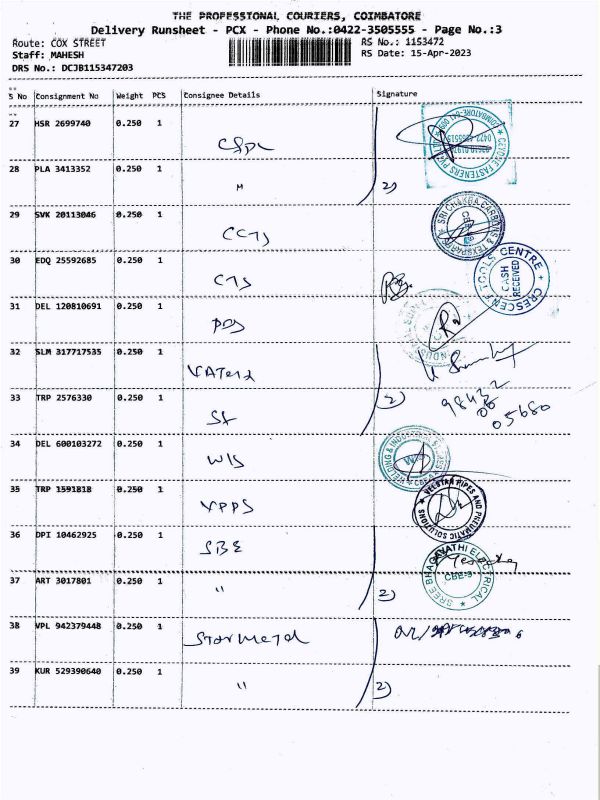 THE PROFESSIONAL COURIERS, COIMBATORE
Delivery Runsheet - PCX - Phone No.:0422-3505555 - Page No.:3
Route: COX STREET
RS No.: 1153472
Staff: MAHESH
RS Date: 15-Apr-2023
DRS No.: DCJB115347203
S No Consignment No Weight PCS Consignee Details Signature
27 HSR 2699740 0.250 1
28 PLA 3413352 0.250 1 " 2)
29 SVK 20113046 0.250 1 CCTS
SRI CHAKRA CARBONS &
30 EDQ 25592685 0.250 1 CTS
CRESCENT TOOLS CENTRE
CASH RECEIVED
31 DEL 120810691 0.250 1 PDS
32 SLM 317717535 0.250 1
33 TRP 2576330 0.250 1 SK 2)
98432
05680
34 DEL 600103272 0.250 1 WIS
WELDING & INDUSTRIAL
35 TRP 1591818 0.250 1 VPPS
VELSTAR PIPES AND PNEUMATIC SOLUTIONS
36 DPI 10462925 0.250 1 SBE
SREE BHAGAVATHI ELECTRICAL
CBE-9
37 ART 3017801 0.250 1 " 2)
38 VPL 942379448 0.250 1 Starmetal
39 KUR 529390640 0.250 1 " 2)